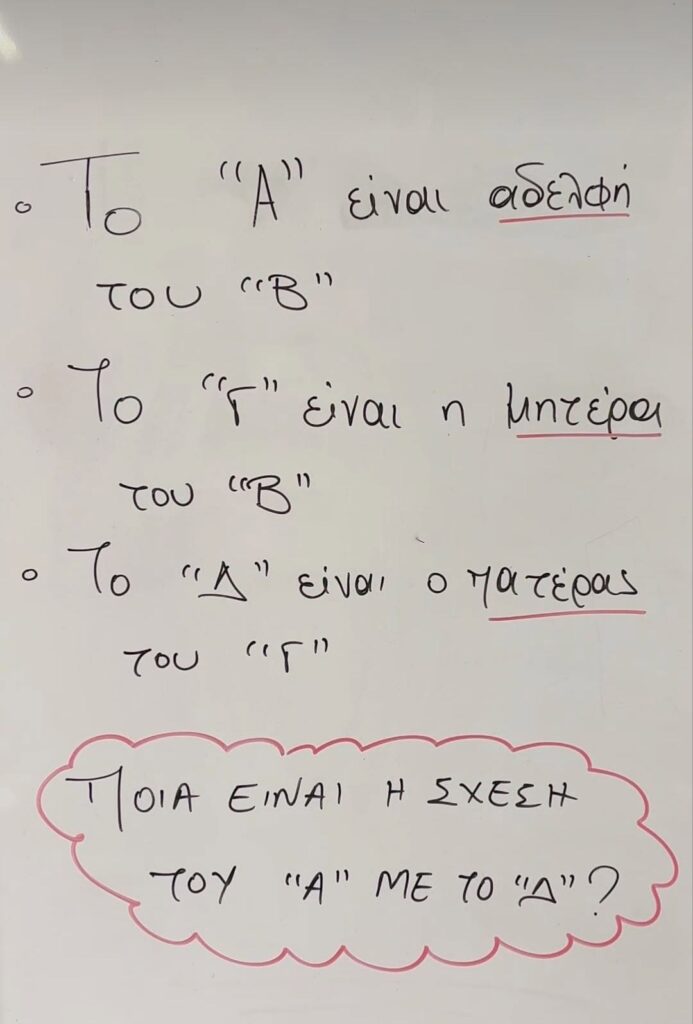 • Το "Α" είναι αδελφή
του "Β"
• Το "Γ" είναι η μητέρα
του "Β"
• Το "Δ" είναι ο πατέρας
του "Γ"
ΠΟΙΑ ΕΙΝΑΙ Η ΣΧΕΣΗ
ΤΟΥ "Α" ΜΕ ΤΟ "Δ"?